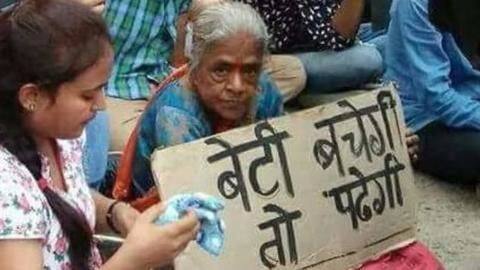 बेटी बचेगी
तो पढेगी